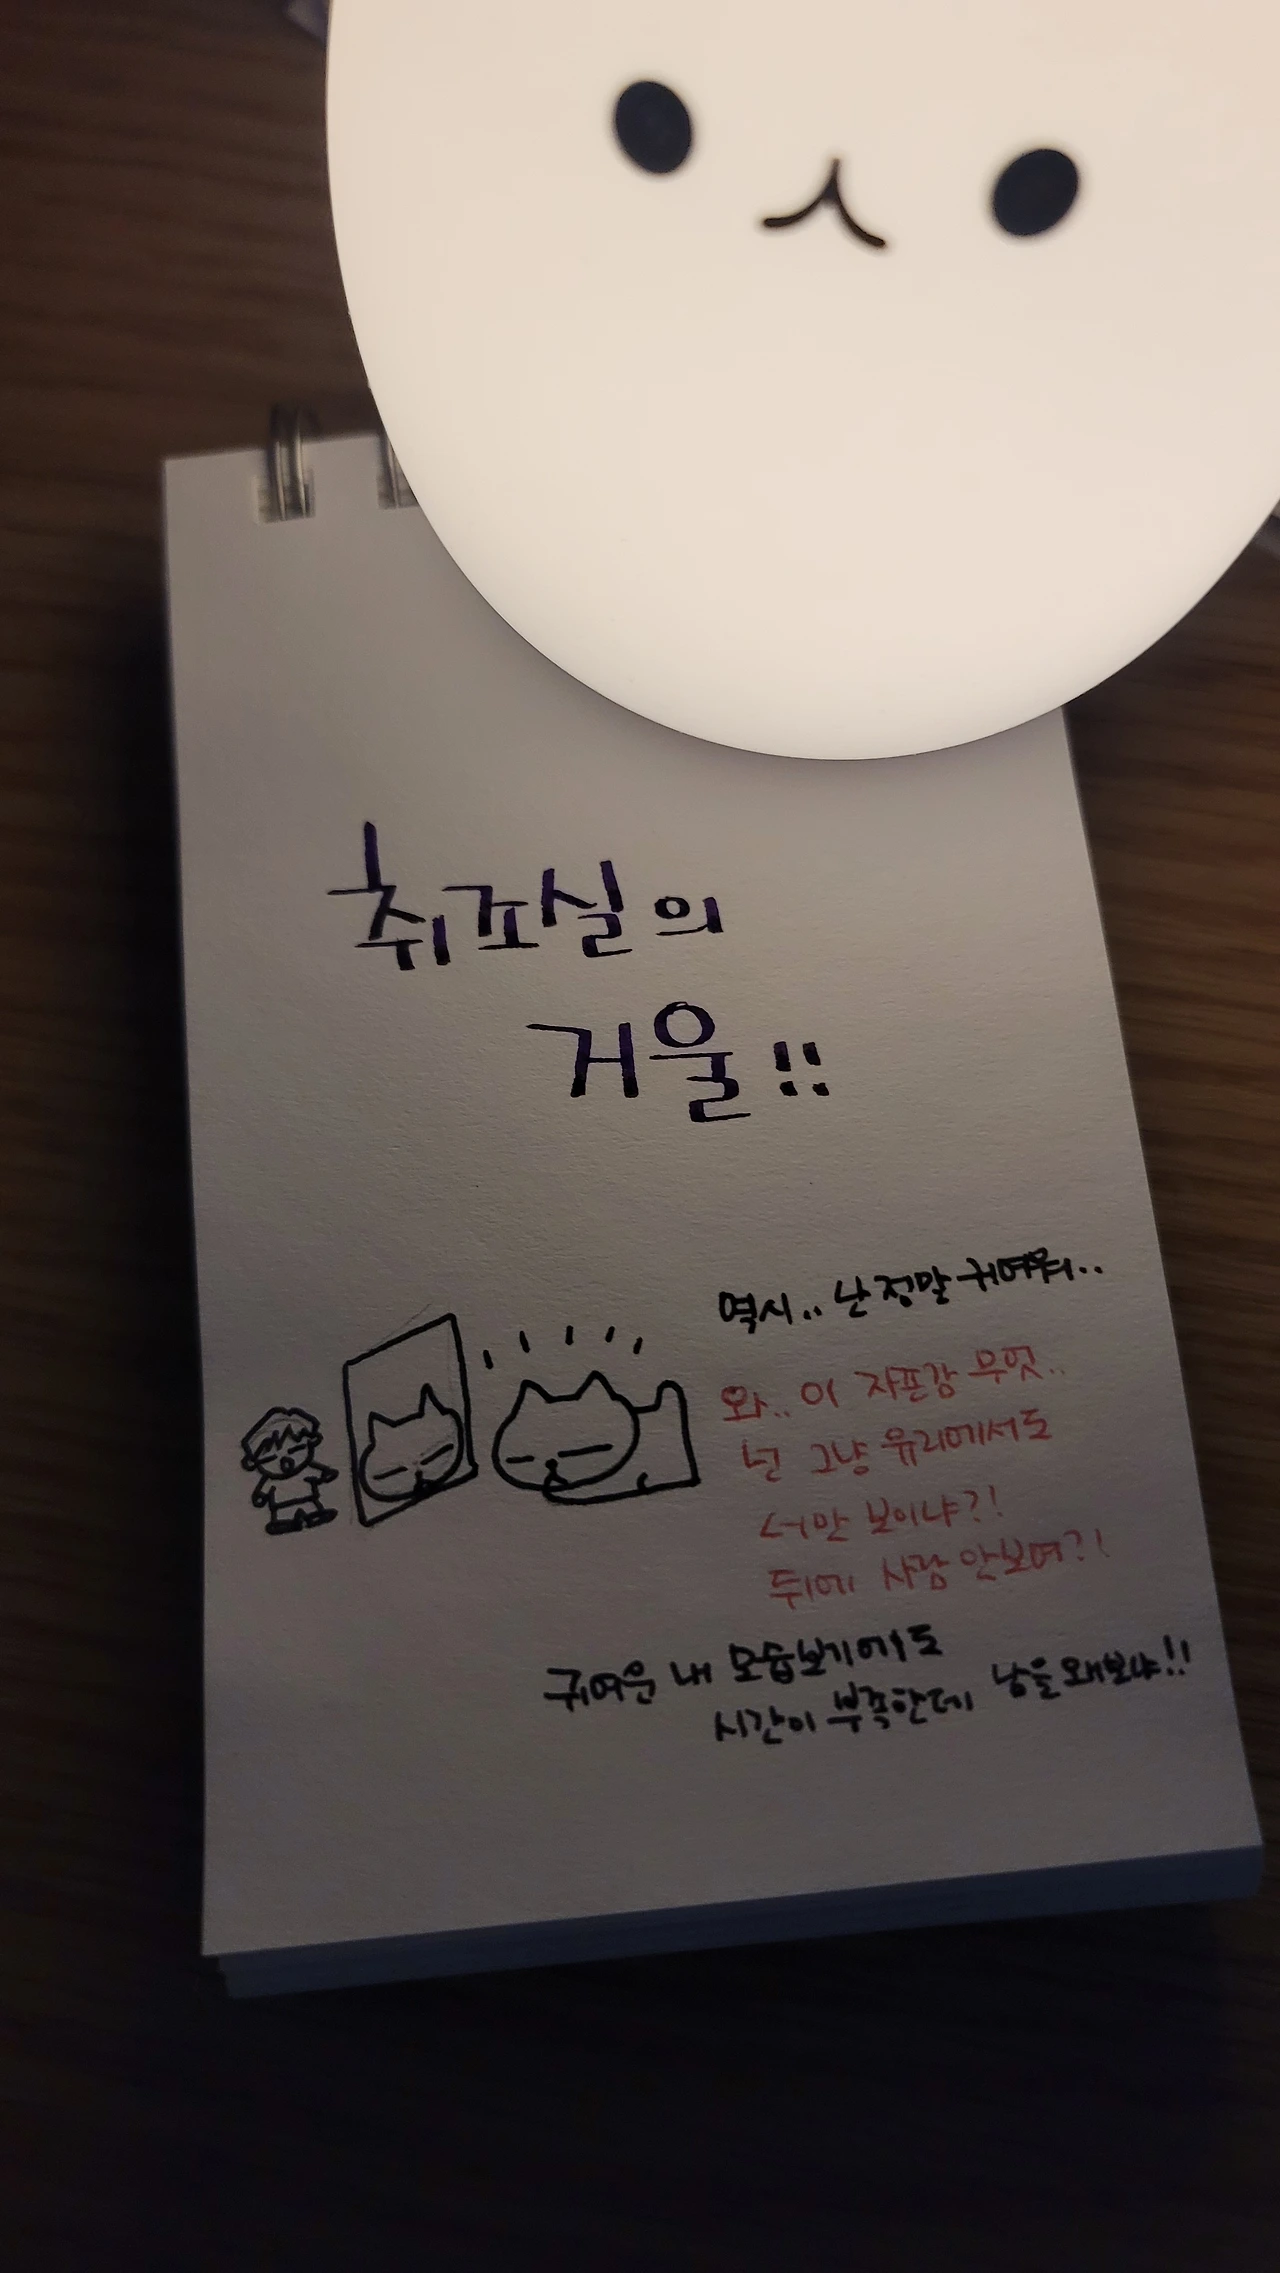 취조실의
거울!!
역시.. 난 정말 귀여워..
와.. 이 자뻑감 무엇..
넌 그냥 유리에서도
너만 보이냐?!
뒤에 사람 안보여?!
귀여운 내 모습보기에도
시간이 부족한데 남을 왜보냐!!